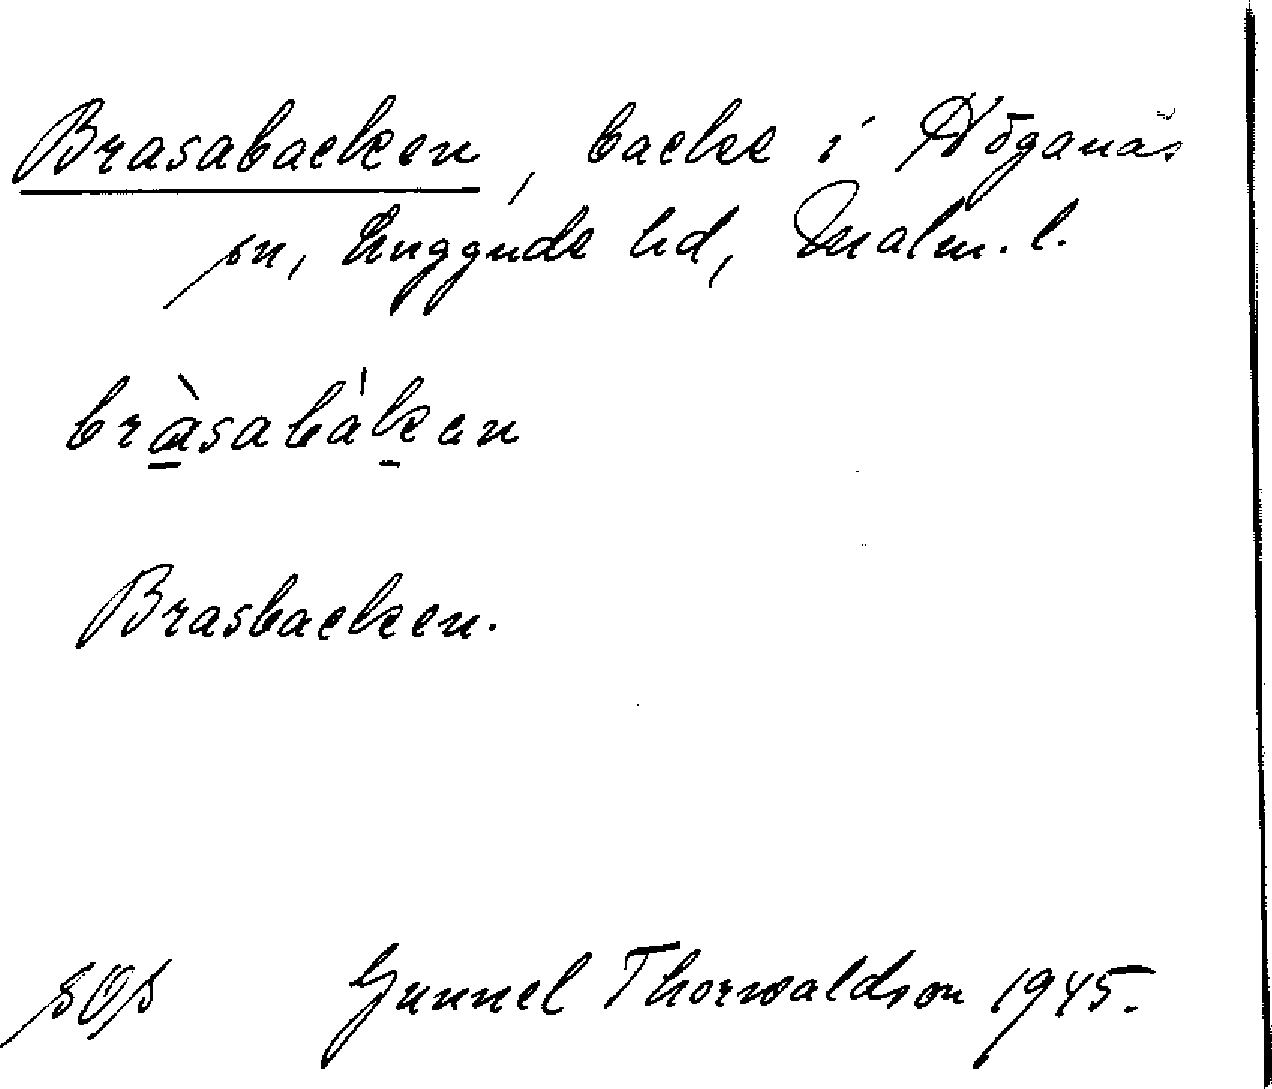 Brasabacken, backe i Höganäs
sn, Luggude hd, Malm. l.
bràsabákan
Brasbacken.
SOS Gunnel Thorwaldson 1945.